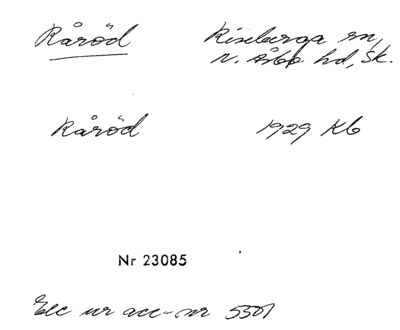 Råröd
Riseberga sn,
N. Åsbo hd, Sk.
Råröd
1929 Kb
Nr 23085
Exc ur acc-nr 5501